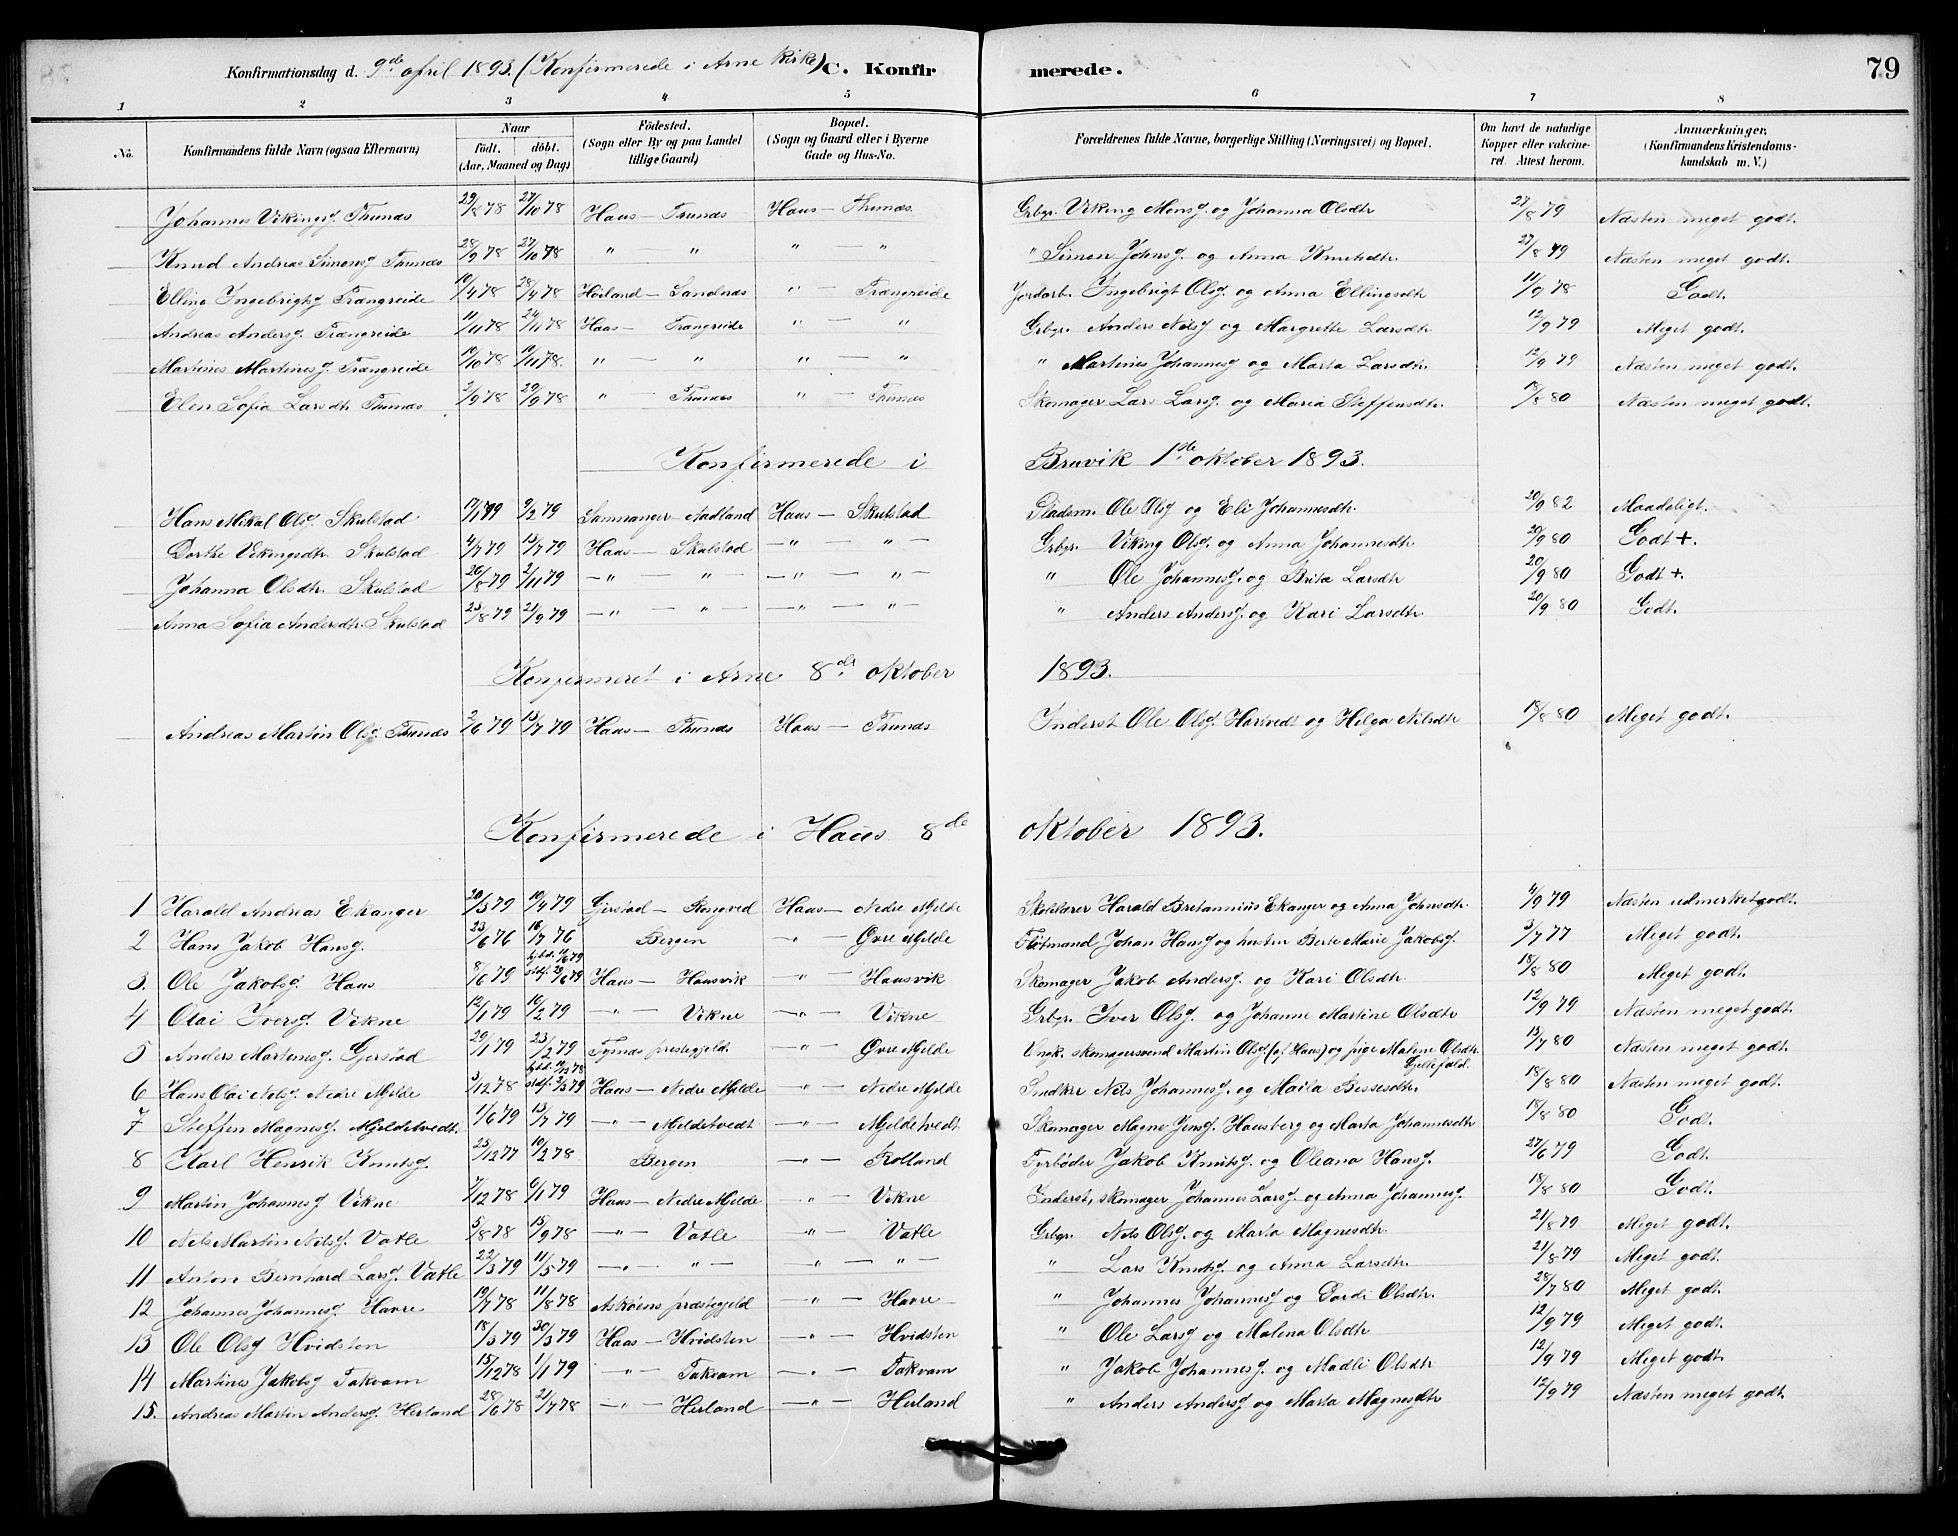 79
Konfirmationsdag d. 9de april 1893. (Konfirmerede i Arne Kirke) C. Konfirmerede.
1 2 3 4 5 6 7 8
No. Konfirmandens fulde Navn (ogsaa Efternavn) Naar født. døbt. (Aar, Maaned og Dag) Fødested. (Sogn eller By og paa Landet tillige Gaard) Bopæl. (Sogn og Gaard eller i Byerne Gade og Hus-No. Forældrenes fulde Navne, borgerlige Stilling (Næringsvei) og Bopæl. Om havt de naturlige Kopper eller vakcineret. Attest herom. Anmærkninger, (Konfirmandens Kristendomskundskab m. V.)
Johannes Vikingsg. Thunæs 29/8 78 27/10 78 Haus — Thunæs Haus — Thunæs. Grbgr. Viking Monsg. og Johanna Olsdtr 27/8 79 Næsten meget godt.
Knud Andreas Simonsg Thunæs 28/9 78 27/10 78 " — " " — " " Simon Johnsg. og Anna Knutsdtr 27/8 79 Næsten meget godt.
Elling Ingebrigtsg Trængreide 10/4 78 28/4 78 Høiland — Sandnæs " — Trængreide Jordarb. Ingebrigt Olsg. og Anna Ellingsdtr 11/9 78 Godt.
Andreas Andersg. Trængreide 11/11 78 24/11 78 Haus — Trængreide " — " Grbgr. Anders Nilsg og Margrethe Larsdtr 12/9 79 Meget godt.
Martines Martinesg. Trængreide 10/10 78 10/11 78. " — " " — " " Martines Johannesg og Marta Larsdtr. 12/9 79 Næsten meget godt.
Elen Sofia Larsdtr Thunæs 2/9 78 29/9 78 " — Thunæs " — Thunæs Skomager Lars Larsg. og Maria Steffensdtr. 18/8 80 Næsten meget godt.
Konfirmerede i Bruvik 1ste oktober 1893.
Hans Mikal Olsg. Skulstad 17/1 79 9/2 79 Samnanger — Aadland Haus — Skulstad Pladsm. Ole Olsg og Eli Johannesdtr. 20/9 82 Maadeligt.
Dorthe Vikingsdtr. Skulstad 4/7 79 13/7 79 Haus — Skulstad — " — " — Grbgr. Viking Olsg. og Anna Johannesdtr 20/9 80 Godt +.
Johanna Olsdtr. Skulstad 26/8 79 2/11 79 — " — " — — " — " — " Ole Johannesg. og Brita Larsdtr 20/9 80 Godt +.
Anna Sofia Andersdtr. Skulstad 25/8 79 21/9 79 — " — " — — " — " — " Anders Andersg. og Kari Larsdtr 20/9 80 Godt.
Konfirmeret i Arne 8de oktober 1893.
Andreas Martin Olsg Thunæs 2/6 79 13/7 79 Haus — Thunæs Haus — Thunæs Inderst Ole Olsg. Hartvedt og Helga Nilsdtr 18/8 80 Meget godt.
Konfirmerede i Haus 8de oktober 1893.
1 Harald Andreas Ekanger 20/3 79 10/4 79 Gjerstad — Rongved Haus — Nedre Mjelde Skolelærer Harald Britannius Ekanger og Anna Johnsdtr. 4/9 79 Næsten udmerket godt.
2 Hans Jakob Hansg. 23/6 76 16/7 76 Bergen — " — Øvre Mjelde Fløtmand Johan Hansg og hustru Berte Marie Jakobsg. 3/7 77 Meget godt.
3. Ole Jakobsg. Haus 8/6 79 hjbd. /6 79 stdf. 29/6 79 Haus — Hausvik — " — Hausvik Skomager Jakob Andersg. og Kari Olsdtr. 18/8 80 Meget godt.
4 Olai Iversg. Vikne 12/1 79 16/2 79 — " — Vikne — " — Vikne Grbgr. Iver Olsg. og Johanne Martine Olsdtr 12/9 79 Næsten meget godt.
5 Anders Martinesg. Gjerstad 29/1 79 23/2 79 Tysnæs prestegjeld. — " — Øvre Mjelde Ungk. skomagersvend Martin Olsg (af Haus) og pige Malene Olsdtr. 15/7 80 Næsten meget godt.
6 Hans Olai Nilsg. Nedre Mjelde 3/12 78 hjbd. 78 stdf. 2/3 79 Haus — Nedre Mjelde — " — Nedre Mjelde Snedker Nils Johannesg. og Maila Bessesdtr. 18/8 80 Næsten meget godt.
7 Steffen Magnesg. Mjeldetvedt. 1/6 79 13/7 79 — " — Mjeldetvedt — " — Mjeldetvedt Skomager Magne Jensg. Hausberg og Marta Johannesdtr 18/8 80 Godt.
8 Karl Henrik Knutsg. 25/12 77 10/2 78 Bergen — " — Rolland Fyrbøder Jakob Knutsg. og Oleana Hansg. 27/6 79 Godt.
9 Martin Johannesg Vikne 7/12 78 6/1 79 Haus — Nedre Mjelde — " — Vikne Inderst, skomager Johannes Larsg. og Anna Johannesg. 18/8 80 Godt.
10 Nils Martin Nilsg. Vatle 5/8 78 15/9 78 — " — Vatle — " — Vatle Grbgr. Nils Olsg. og Marta Magnesdtr 21/8 79 Meget godt.
11 Anton Bernhard Larsg. Vatle 22/3 79 11/5 79 — " — " — — " — " " Lars Knutsg. og Anna Larsdtr. 21/8 79 Meget godt.
12 Johannes Johannesg Havre 19/7 78 11/8 78 Askøens præstegjeld — " — Havre " Johannes Johannesg og Dordi Olsdtr. 28/7 80 Meget godt.
13 Ole Olsg Hvidsten 18/3 79 30/3 79 Haus — Hvidsten — " — Hvidsten " Ole Larsg og Malena Olsdtr 12/9 79 Meget godt.
14 Martines Jakobsg Takvam 15/12 78 1/1 79 — " — Takvam — " — Takvam " Jakob Johannesg. og Madli Olsdtr 12/9 79 Meget godt.
15. Andreas Martin Andersg. Herland 28/6 78 21/7 78 — " — Herland — " — Herland " Anders Andersg og Marta Magnesdtr 12/9 79 Næsten meget godt.